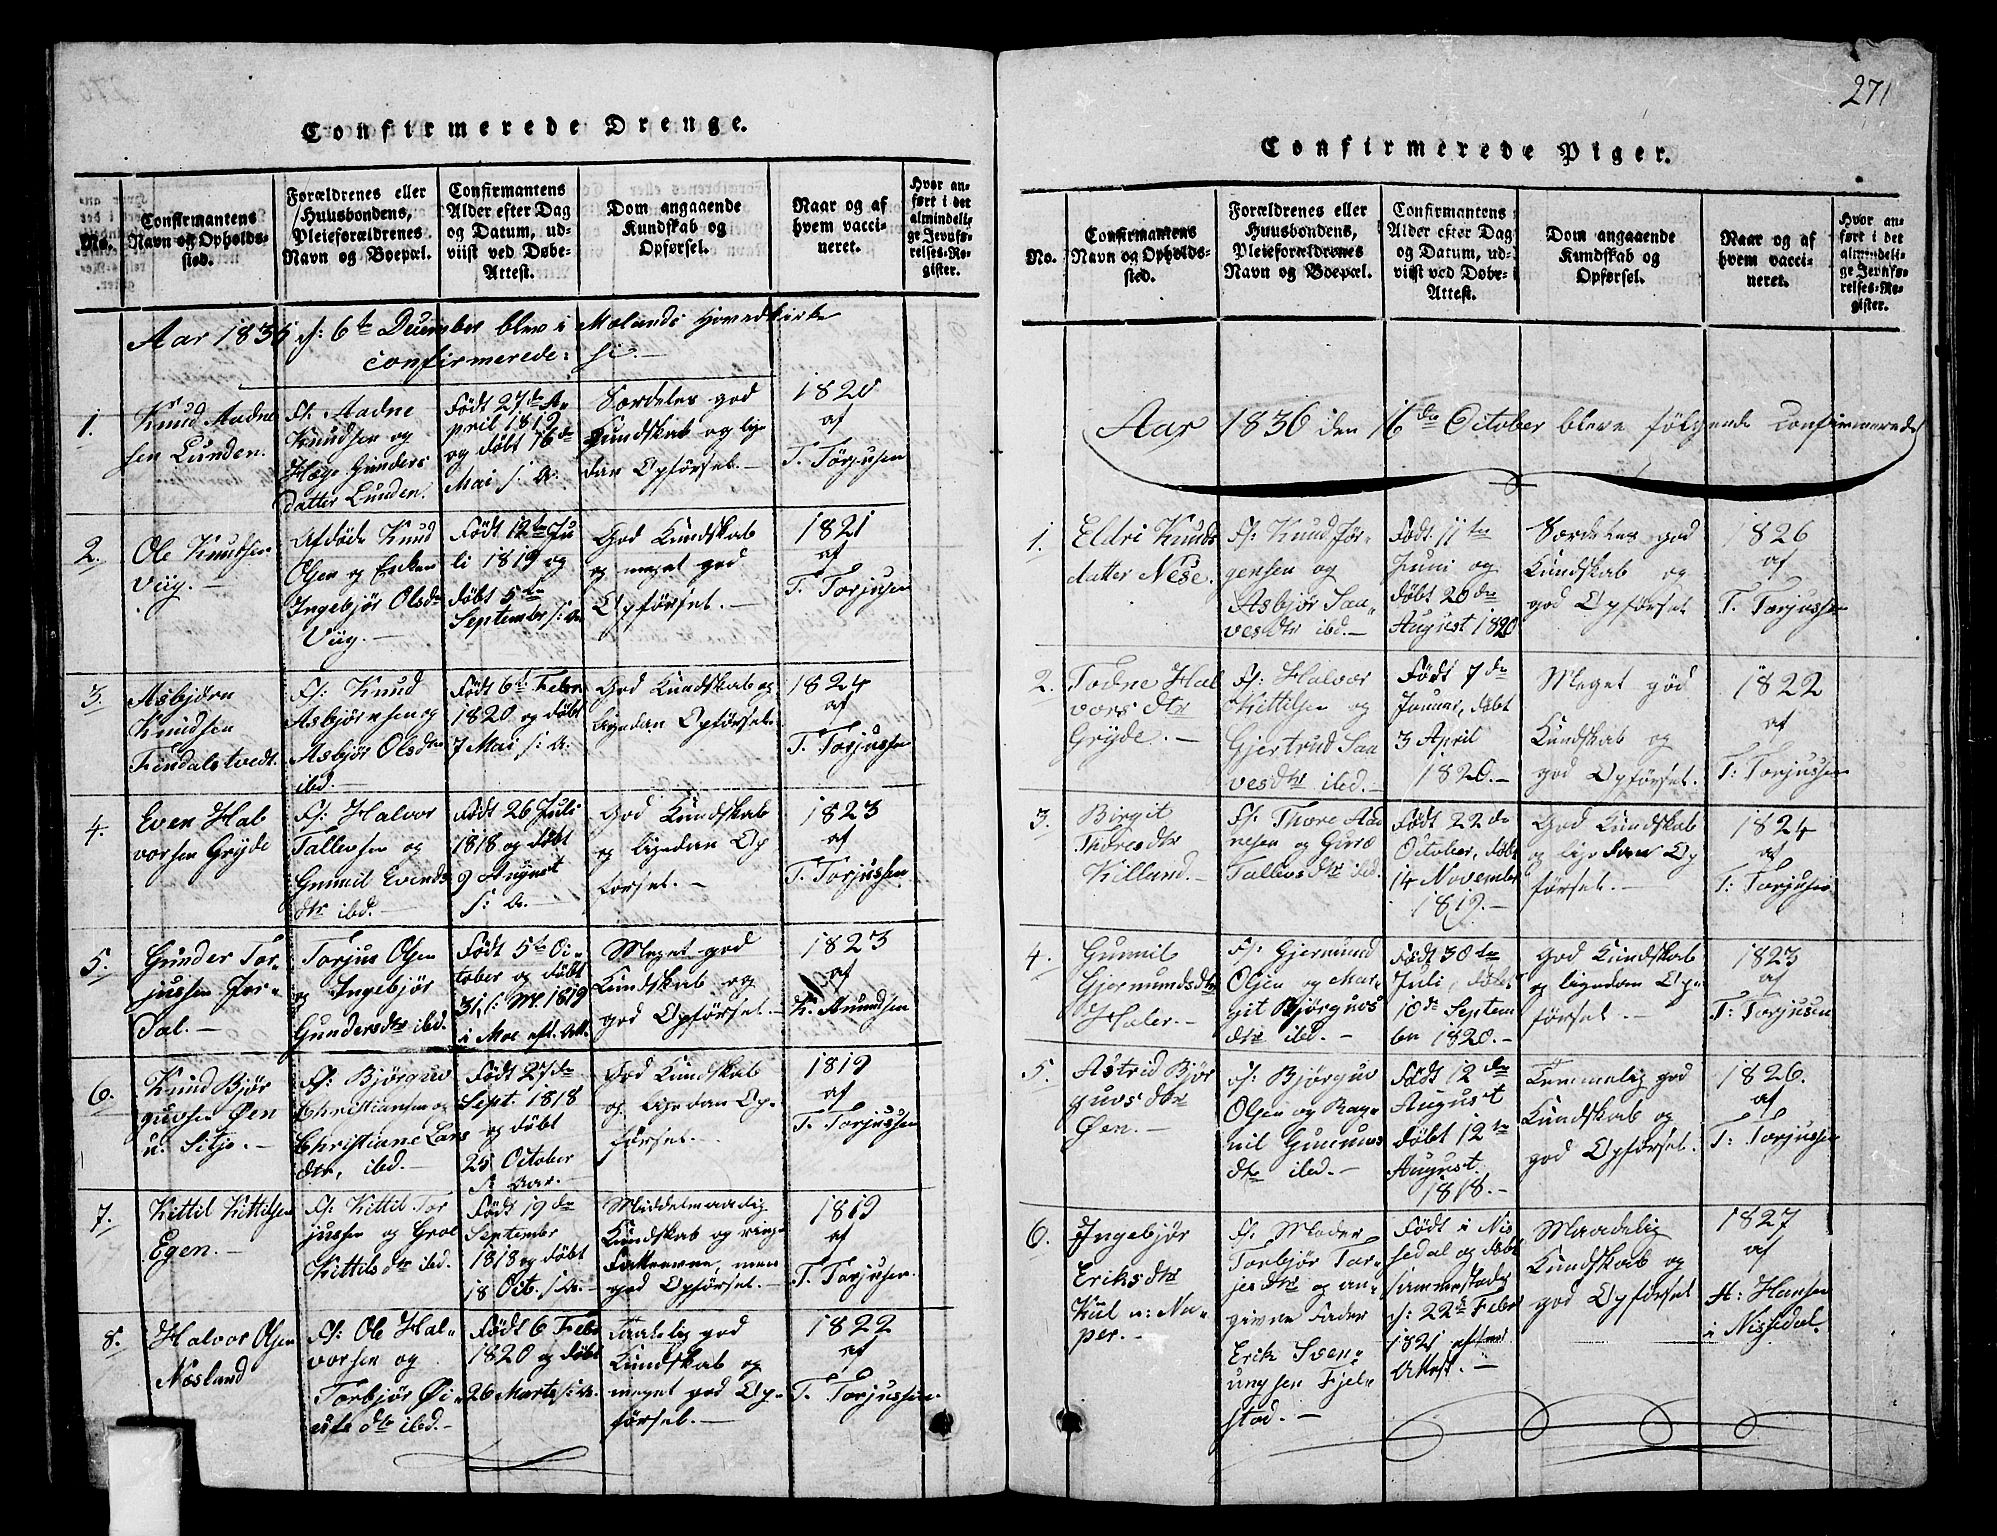 Confirmerede Drenge.
No.
Confirmantens
Navn og Opholds-
sted.
Forældrenes eller
Huusbondens,
Pleieforældrenes
Navn og Boepæl.
Confirmantens
Alder efter Dag
og Datum, ud-
viist ved Døbe-
Attest.
Dom angaaende
Kundskab og
Opførsel.
Naar og af
hvem vacci-
neret.
Hvor an-
ført i det
almindeli-
ge Jevnfø-
relses-Re-
gister.
Aar 1835 d: 6te December blev i Molands Hovedkirke
confirmerede:
1.
Knud Aadne
sen Lunden.
F: Aadne
Knudsen og
Hæge Gunders
datter Lunden.
Født 27de A-
pril 1819
og døbt 16de
Mai s: A:
Særdeles god
Kundskab og lige
dan Opførsel.-
1820
af
T. Torjusen
2.
Ole Knudsen
Viig.
Afdøde Knud
Olsen og Enken
Ingebjør Olsdr
Viig.-
Født 12te Ju
li 1819 og
døbt 5de
September s: A:
God Kundskab
og meget god
Opførsel.-
1821
af
T. Torjusen
3.
Asbjørn
Knudsen
Findalstvedt.
F: Knud
Asbjørnsen og
Asbjør Olsdr
ibd.-
Født 6te Febr
1820 og døbt
7 Mai s: A:
God Kundskab og
ligedan Opførsel.
1824
af
T. Torjussen
4.
Even Hal
vorsen Gryde
F: Halvor
Tallevsen og
Gunnil Evends
dtr ibd.-
Født 26 Juli
1818 og døbt
9 August
s: A.-
God Kundskab
og ligedan Op
førsel.-
1823
af
T. Torjussen
5.
Gunder Tor-
jussen For-
dal.-
Torjus Olsen
og Ingebjør
Gundersdtr ibd.
Født 5te Oc-
tober og døbt
31, s: M. 1819
i Moe eft. Att.
Meget god
Kundskab og
god Opførsel.-
1823
af
K. Amundsen
6.
Knud Bjør
guvsen Øen
F: Bjørguv
Christiansen og
Christiane Lars
dtr, ibd.-
Født 27de
Sept. 1818
og døbt
25 October
s: Aar.-
God Kundskab
og ligedan Op-
førsel.
1819
af
T. Torjussen
7.
Kittil Kittilsen
Egen.-
F: Kittil Tor
jussen og Groe
Kittilsdtr ibd.
Født 19de
September
1818 og døbt
18 Oct. s: A:-
Middelmaadig
Kundskab og ringe
Fatteevne, men
god Opførsel.-
1819
af
T. Torjusen
8.
Halvor Olsen
Næsland
F: Ole Hal-
vorsen og
Torbjør
dtr ibd.-
Født 6 Febr
1820 og døbt
26 Marts s: A.
Taalelig god
Kundskab og
meget god Op-
førsel.-
1822
af
T. Torjussen
271
Confirmerede Piger.
No.
Confirmantens
Navn og Opholds-
sted.
Forældrenes eller
Huusbondens,
Pleieforældrenes
Navn og Boepæl.
Confirmantens
Alder efter Dag
og Datum, ud-
viist ved Døbe-
Attest.
Dom angaaende
Kundskab og
Opførsel.
Naar og af
hvem vacci-
neret.
Hvor an-
ført i det
almindeli-
ge Jevnfø-
relses-Re-
gister.
Aar 1836 den 16de October bleve følgende Confirmerede
1.
Eldri Knuds
datter Nese.
F: Knud Jør-
gensen og
Asbjør Saa-
vesdtr ibd.-
Født 11te
Juni og
døbt 20de
August 1820
Særdeles god
Kundskab og
god Opførsel
1826
af
T. Torjussen
2.
Todne Hal
vorsdtr
Gryde.-
F: Halvor
Kittilsen og
Gjertrud Saa
vesdtr ibd.-
Født 7de
Januar, døbt
3 April
1820.-
Meget god
Kundskab og
god Opførsel.
1822
af
T: Torjussen
3.
Birgit
Thoresdtr
Killand.-
F: Thore Aad
nesen og Gurro
Tallevsdtr ibd.
Født 22de
October, døbt
14 November
1819.-
God Kundskab
og ligedan Op
førsel.-
1824
af
T: Torjusen
4.
Gunnil
Gjermundsdtr
F: Gjermund
Olsen og Mar-
git Bjørguvs
dtr ibd.-
Født 30te
Juli, døbt
10de Septem
ber 1820.-
God Kundskab
og ligedan Op-
førsel.-
1823
af
T: Torjusen
5.
Astrid Bjør
guvsdtr
Øen.-
F: Bjørguv
Olsen og Rag-
nil Gunnuvs
dtr ibd.-
Født 12de
August
døbt 12te
August
1818.-
Temmelig god
Kundskab og
god Opførsel.
1826.
af
T: Torjussen
6.
Ingebjør
Eriksdtr
Kiil u: Na-
per.-
F: Moder
Torbjør Tar-
jesdtr og an-
givne Fader
Erik Sven-
ungsen Fjel-
stad.-
Født i Nis
sedal og døbt
sammestæds
d: 22de Febr
1821 efter
Attest.-
Maadelig
Kundskab og
god Opførsel
1827
af
H: Hansen
i Nissedal.